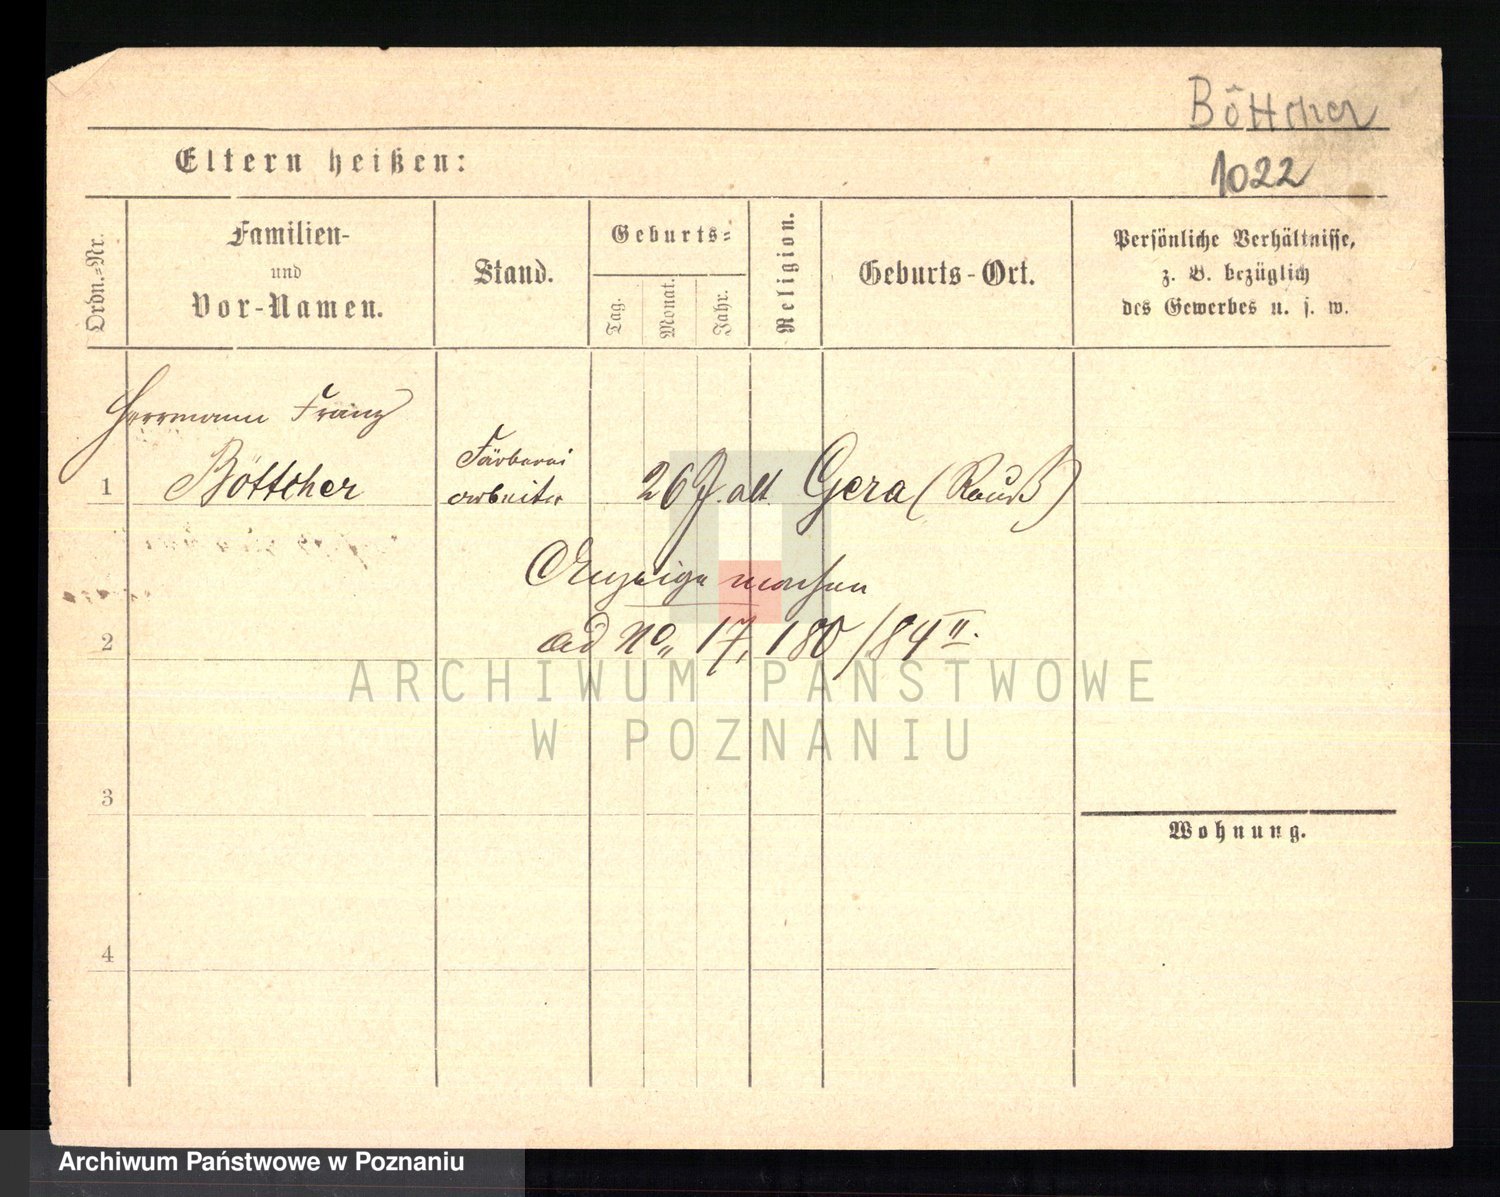 Böttcher
Eltern heißen:
1022
Ordn.=Nr.
Familien-
und
Vor-Namen.
Stand.
Geburts=
Tag.
Monat.
Jahr.
Religion.
Geburts-Ort.
Persönliche Verhältnisse,
z. B. bezüglich
des Gewerbes u. s. w.
Herrmann Franz
1 Böttcher
Färberei
arbeiter
26 J. alt. Gera (Reuß)
Anzeige machen
2
ad No. 17,180/84 II.
ARCHIWUM PAŃSTWOWE
W POZNANIU
3
Wohnung.
4
Archiwum Państwowe w Poznaniu